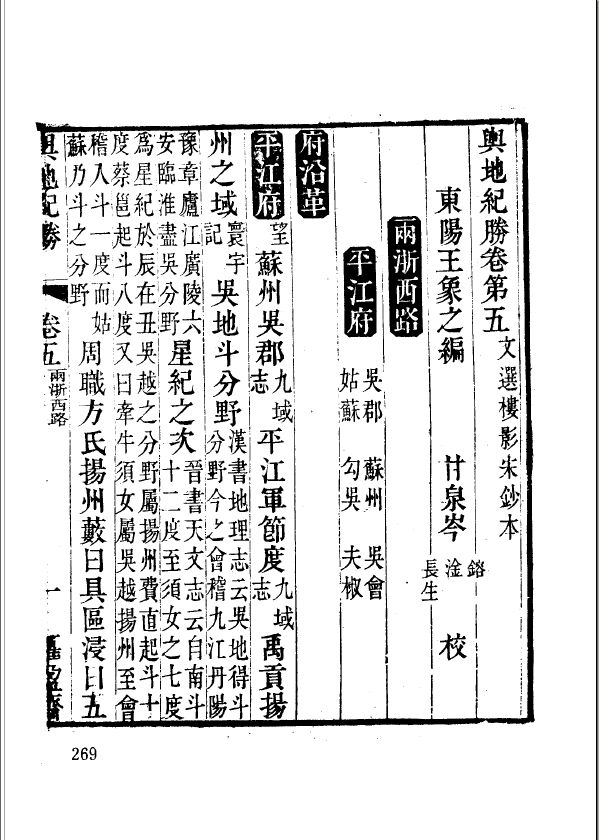 輿地紀勝卷第五 文選樓影宋鈔本
東陽王象之編 甘泉岑 鎔 淦 長生 校
兩浙西路
平江府 吳郡 蘇州 吳會 姑蘇 勾吳 夫椒
府沿革
平江府 望 蘇州吳郡 九域志 平江軍節度 九域志 禹貢揚
州之域 寰宇記 吳地斗分野 漢書地理志云吳地得斗分野今之會稽九江丹陽
豫章廬江廣陵六安臨淮盡吳分野 星紀之次 晉書天文志云自南斗十二度至須女之七度
爲星紀於辰在丑吳越之分野屬揚州費直起斗十度蔡邕起斗八度又曰牽牛須女屬吳越揚州至會
稽入斗一度而姑蘇乃斗之分野 周職方氏揚州藪曰具區浸曰五
輿地紀勝 卷五 兩浙西路 一
269